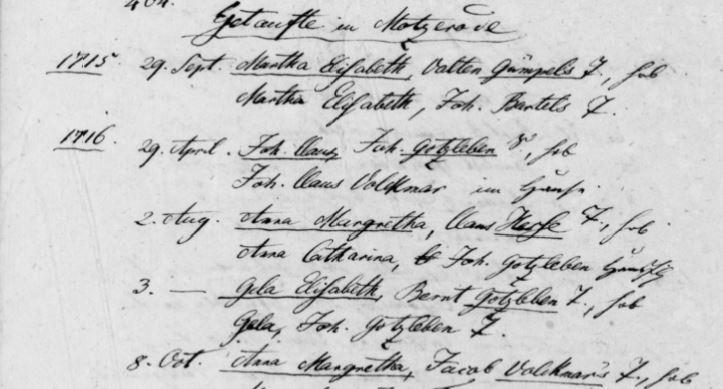 Getaufte in Motzerode
1715 29. Sept. Martha Elisabeth, Valten Gümpels T., hob
Martha Elisabeth, Joh. Bartels T.
1716. 29. April. Joh. Claus, Joh. Gotzleben S., hob
Joh. Claus Volckmar im
2. Aug. Anna Margretha, Claus Hesse T., hob
Anna Catharina, Joh. Gotzleben
3. — Gela Elisabeth, Bernt Götzleben T., hob
Gela, Joh. Gotzleben T.
8. Oct. Anna Margretha, Jacob Volckmar's T., hob